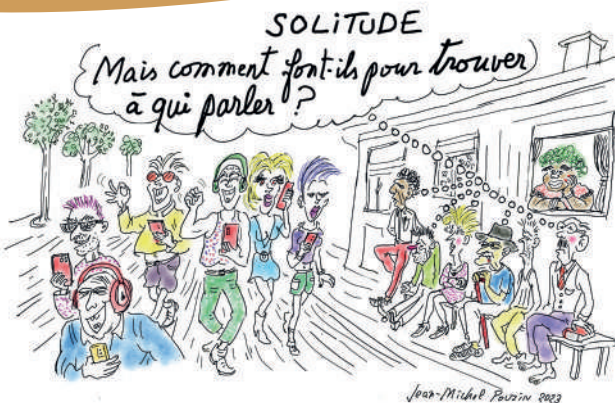 SOLITUDE
Mais comment font-ils pour trouver
à qui parler ?
Jean-Michel Pouzin 2023